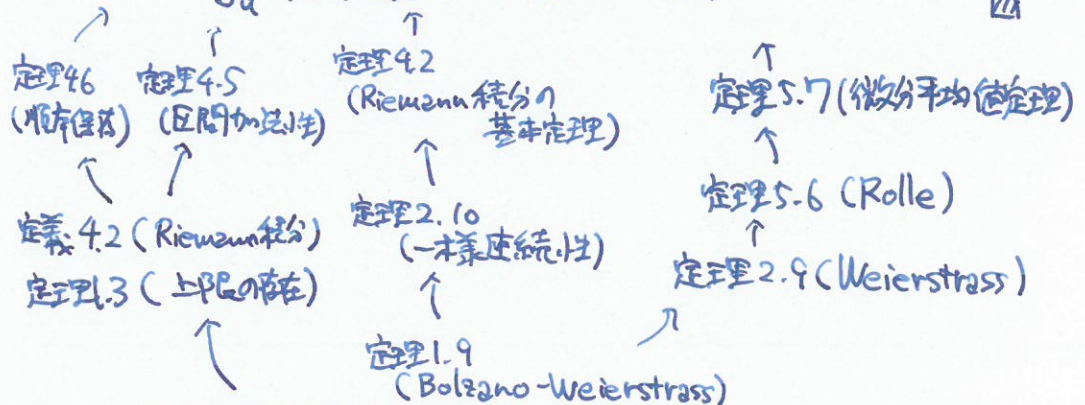 定理4.6
(順序保存)
定理4.5
(区間加法性)
定理4.2
(Riemann積分の
基本定理)
定理5.7(微分平均値定理)
定理5.6 (Rolle)
定義4.2 (Riemann積分)
定理1.3 (上限の存在)
定理2.10
(一様連続性)
定理2.9 (Weierstrass)
定理1.9
(Bolzano-Weierstrass)